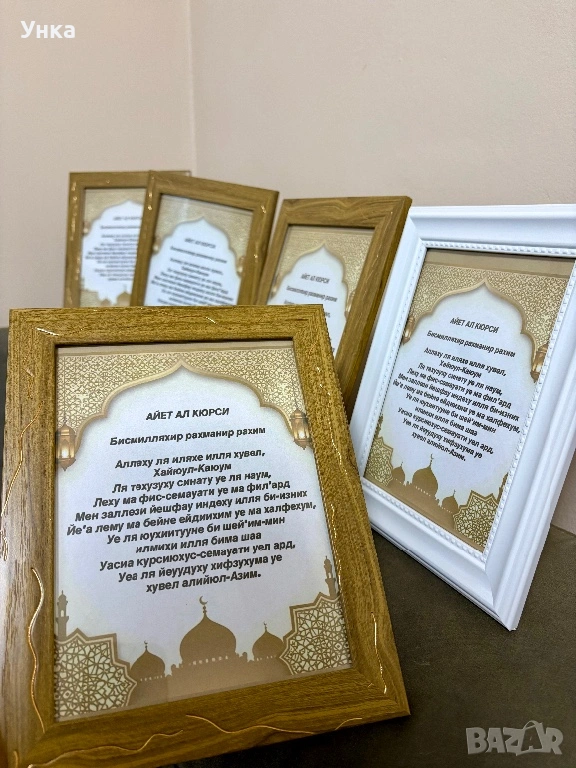 Унка
АЙЕТ АЛ КЮРСИ
Бисмилляхир рахманир рахим
Аллаху ля иляхе илля хувел,
Хайюул-Каюум
Ля тәхузуху синату уе ля наум,
Леху ма фис-семауати уе ма фил'ард
Мен заллези йешфау индеху илля би-изних
Йе'а лему ма бейне ейдиихим уе ма халфехум,
Уе ля юухиитууне би шей'им-мин
илмихи илля бима шаа
Уасиа курсиюхус-семауати уел ард,
Уеа ля йеуудуху хифзухума уе
хувел алийюл-Азим.
АЙЕТ АЛ КЮРСИ
Бисмилляхир рахманир рахим
Аллаху ля иляхе илля хувел,
Хайюул-Каюум
Ля тәхузуху синату уе ля наум,
Леху ма фис-семауати уе ма фил'ард
Мен заллези йешфау индеху илля би-изних
Йе'а лему ма бейне ейдиихим уе ма халфехум,
Уе ля юухиитууне би шей'им-мин
илмихи илля бима шаа
Уасиа курсиюхус-семауати уел ард,
Уеа ля йеуудуху хифзухума уе
хувел алийюл-Азим.
АЙЕТ АЛ КЮРСИ
Бисмилляхир рахманир рахим
АЙЕТ АЛ КЮРСИ
Бисмилляхир рахманир
АЙЕТ АЛ КЮРСИ
BAZAR